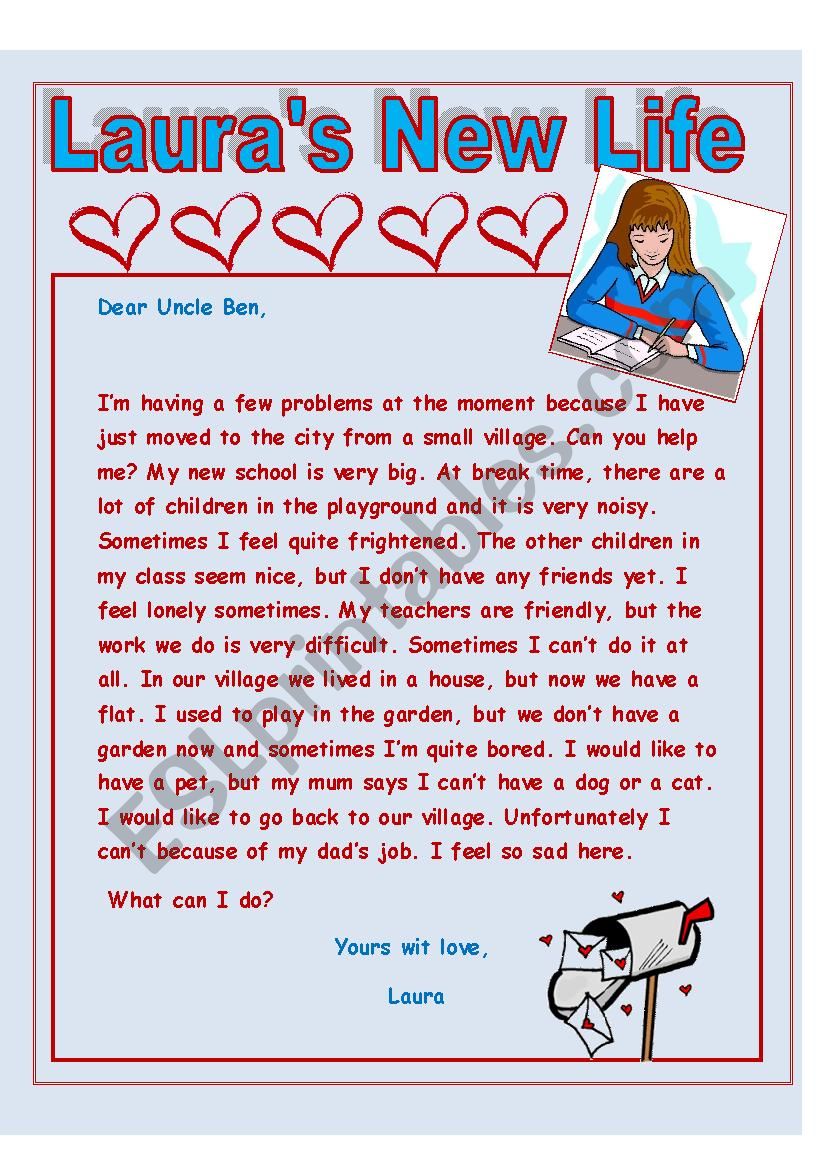 Laura's New Life
Dear Uncle Ben,
I'm having a few problems at the moment because I have
just moved to the city from a small village. Can you help
me? My new school is very big. At break time, there are a
lot of children in the playground and it is very noisy.
Sometimes I feel quite frightened. The other children in
my class seem nice, but I don't have any friends yet. I
feel lonely sometimes. My teachers are friendly, but the
work we do is very difficult. Sometimes I can't do it at
all. In our village we lived in a house, but now we have a
flat. I used to play in the garden, but we don't have a
garden now and sometimes I'm quite bored. I would like to
have a pet, but my mum says I can't have a dog or a cat.
I would like to go back to our village. Unfortunately I
can't because of my dad's job. I feel so sad here.
What can I do?
Yours wit love,
Laura
ESLprintables.com